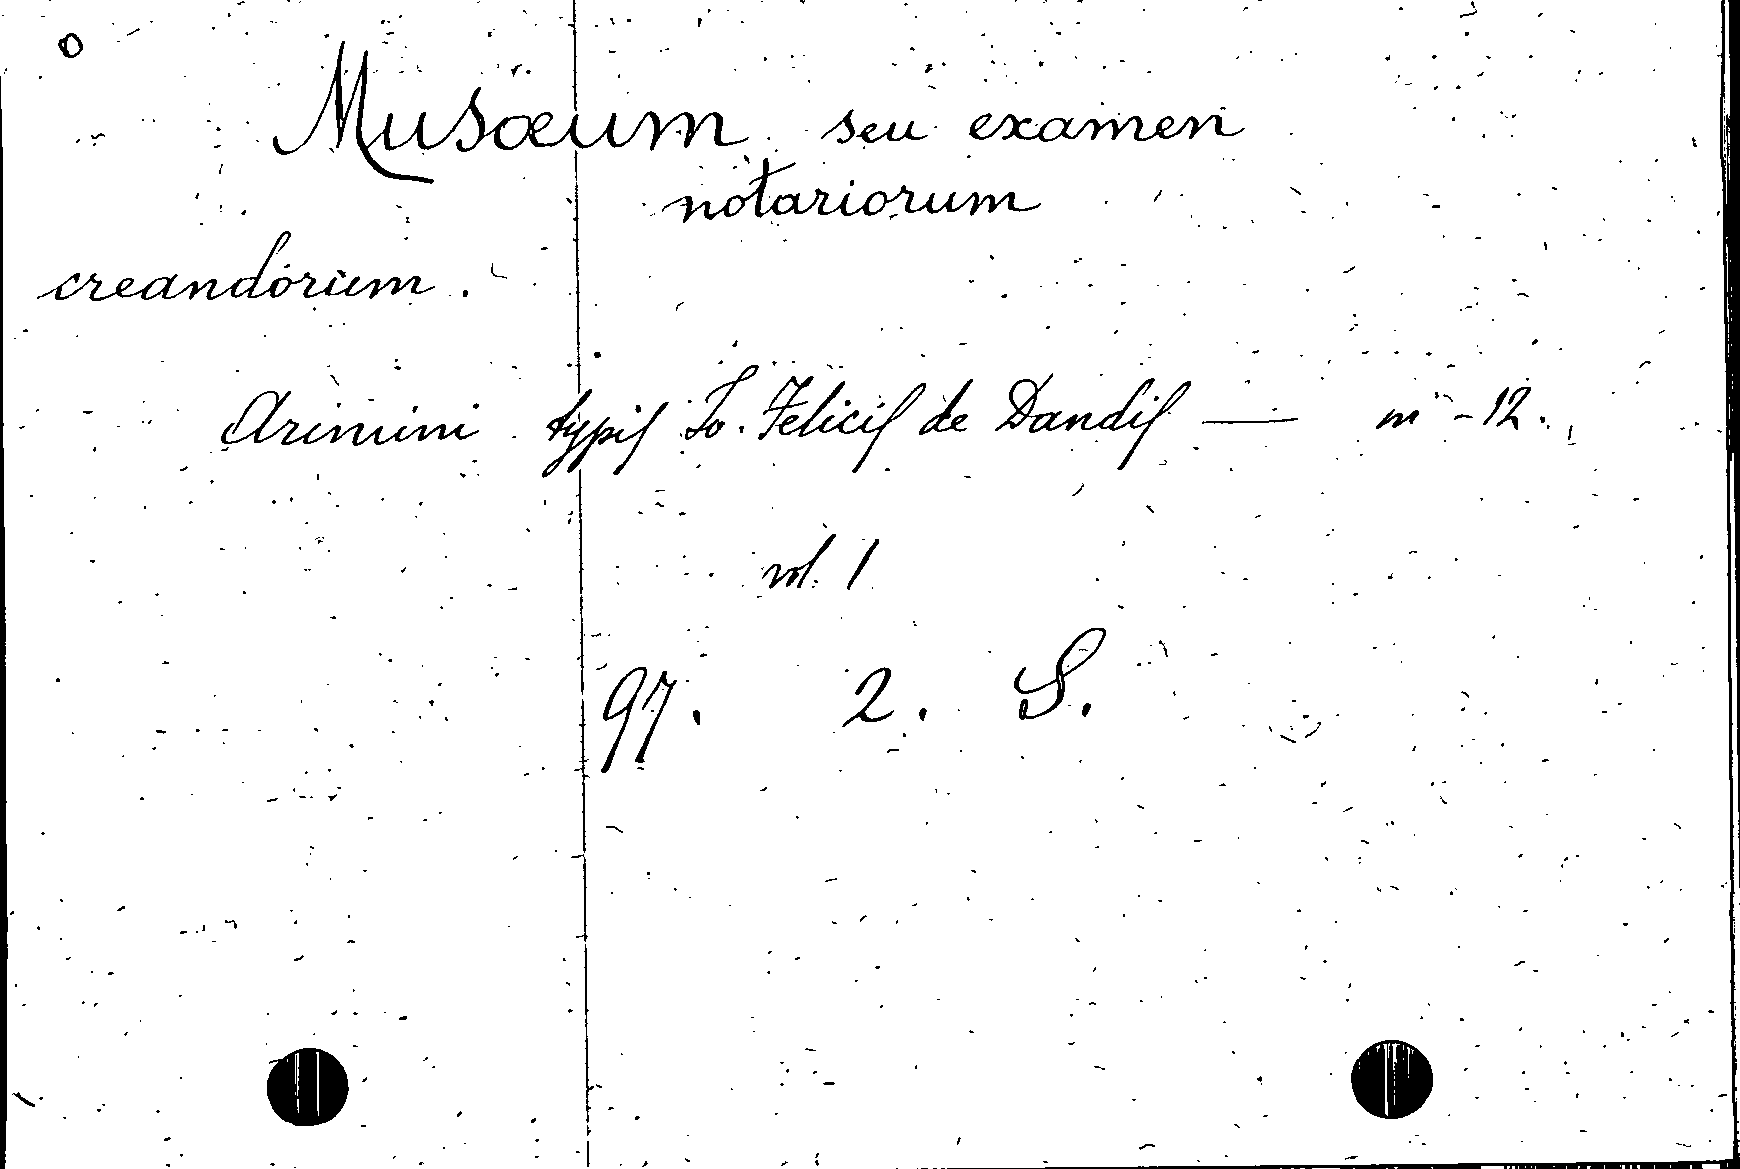 o
Musæum seu examen
notariorum
creandorum.
Arimini typis Jo. Felicis de Dandis — in-12.
vol. 1
97. 2. S.